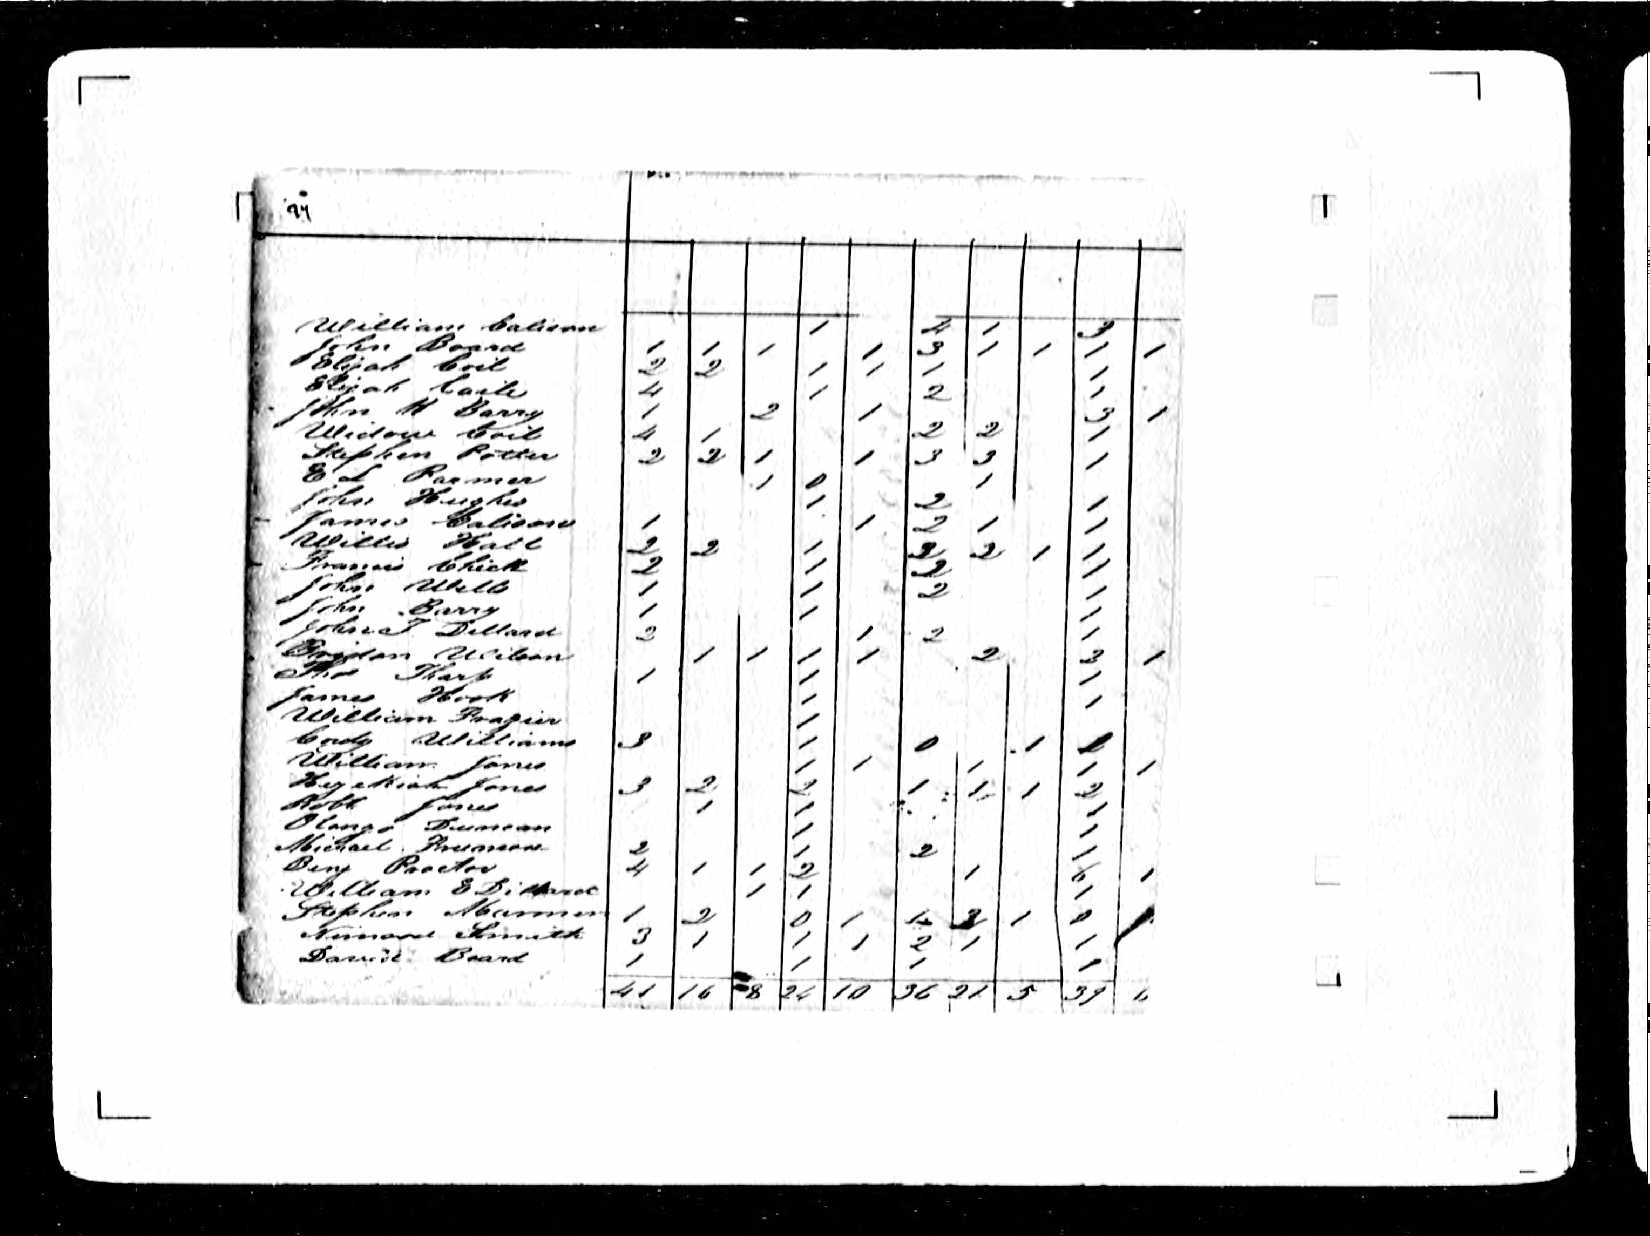 William Calison 1 4 1 3
John Board 1 1 1 1 3 1 1 1 1
Elijah Coil 2 2 1 1 1 1
Elijah 4 1 2 1
John H Barry 1 2 1 3 1
Widow Coil 4 1 2 2 1
Stephen Potter 2 2 1 1 3 3 1
E L Parmer 1 0 1
John Hughs 1 2 1
James Calison 1 1 2 1 1
Willis Hall 2 2 1 2 1 1
Francis Chick 2 1 2 1
John Wells 1 1 2 1
John Barry 1 1 1
John T Dillard 2 1 2 1
Wilson 1 1 1 1 2 3 1
Thos Tharp 1 1 1
James Hook 1 1
William Frazier 1
Cody Williams 3 1 0 1
William Jones 1 1 1 1 1
Hezekiah Jones 3 2 2 1 1 1 2
Robt Jones 1 1 1
Duncan 1 1
Michael Freeman 2 1 2 1
Benj Proctor 4 1 1 2 1 1
William E Dillard 1 1 1
Stephen 1 2 0 1 1 0
Smith 3 1 1 1 2 1 1
David Board 1 1 1 1
41 16 8 24 10 36 21 5 39